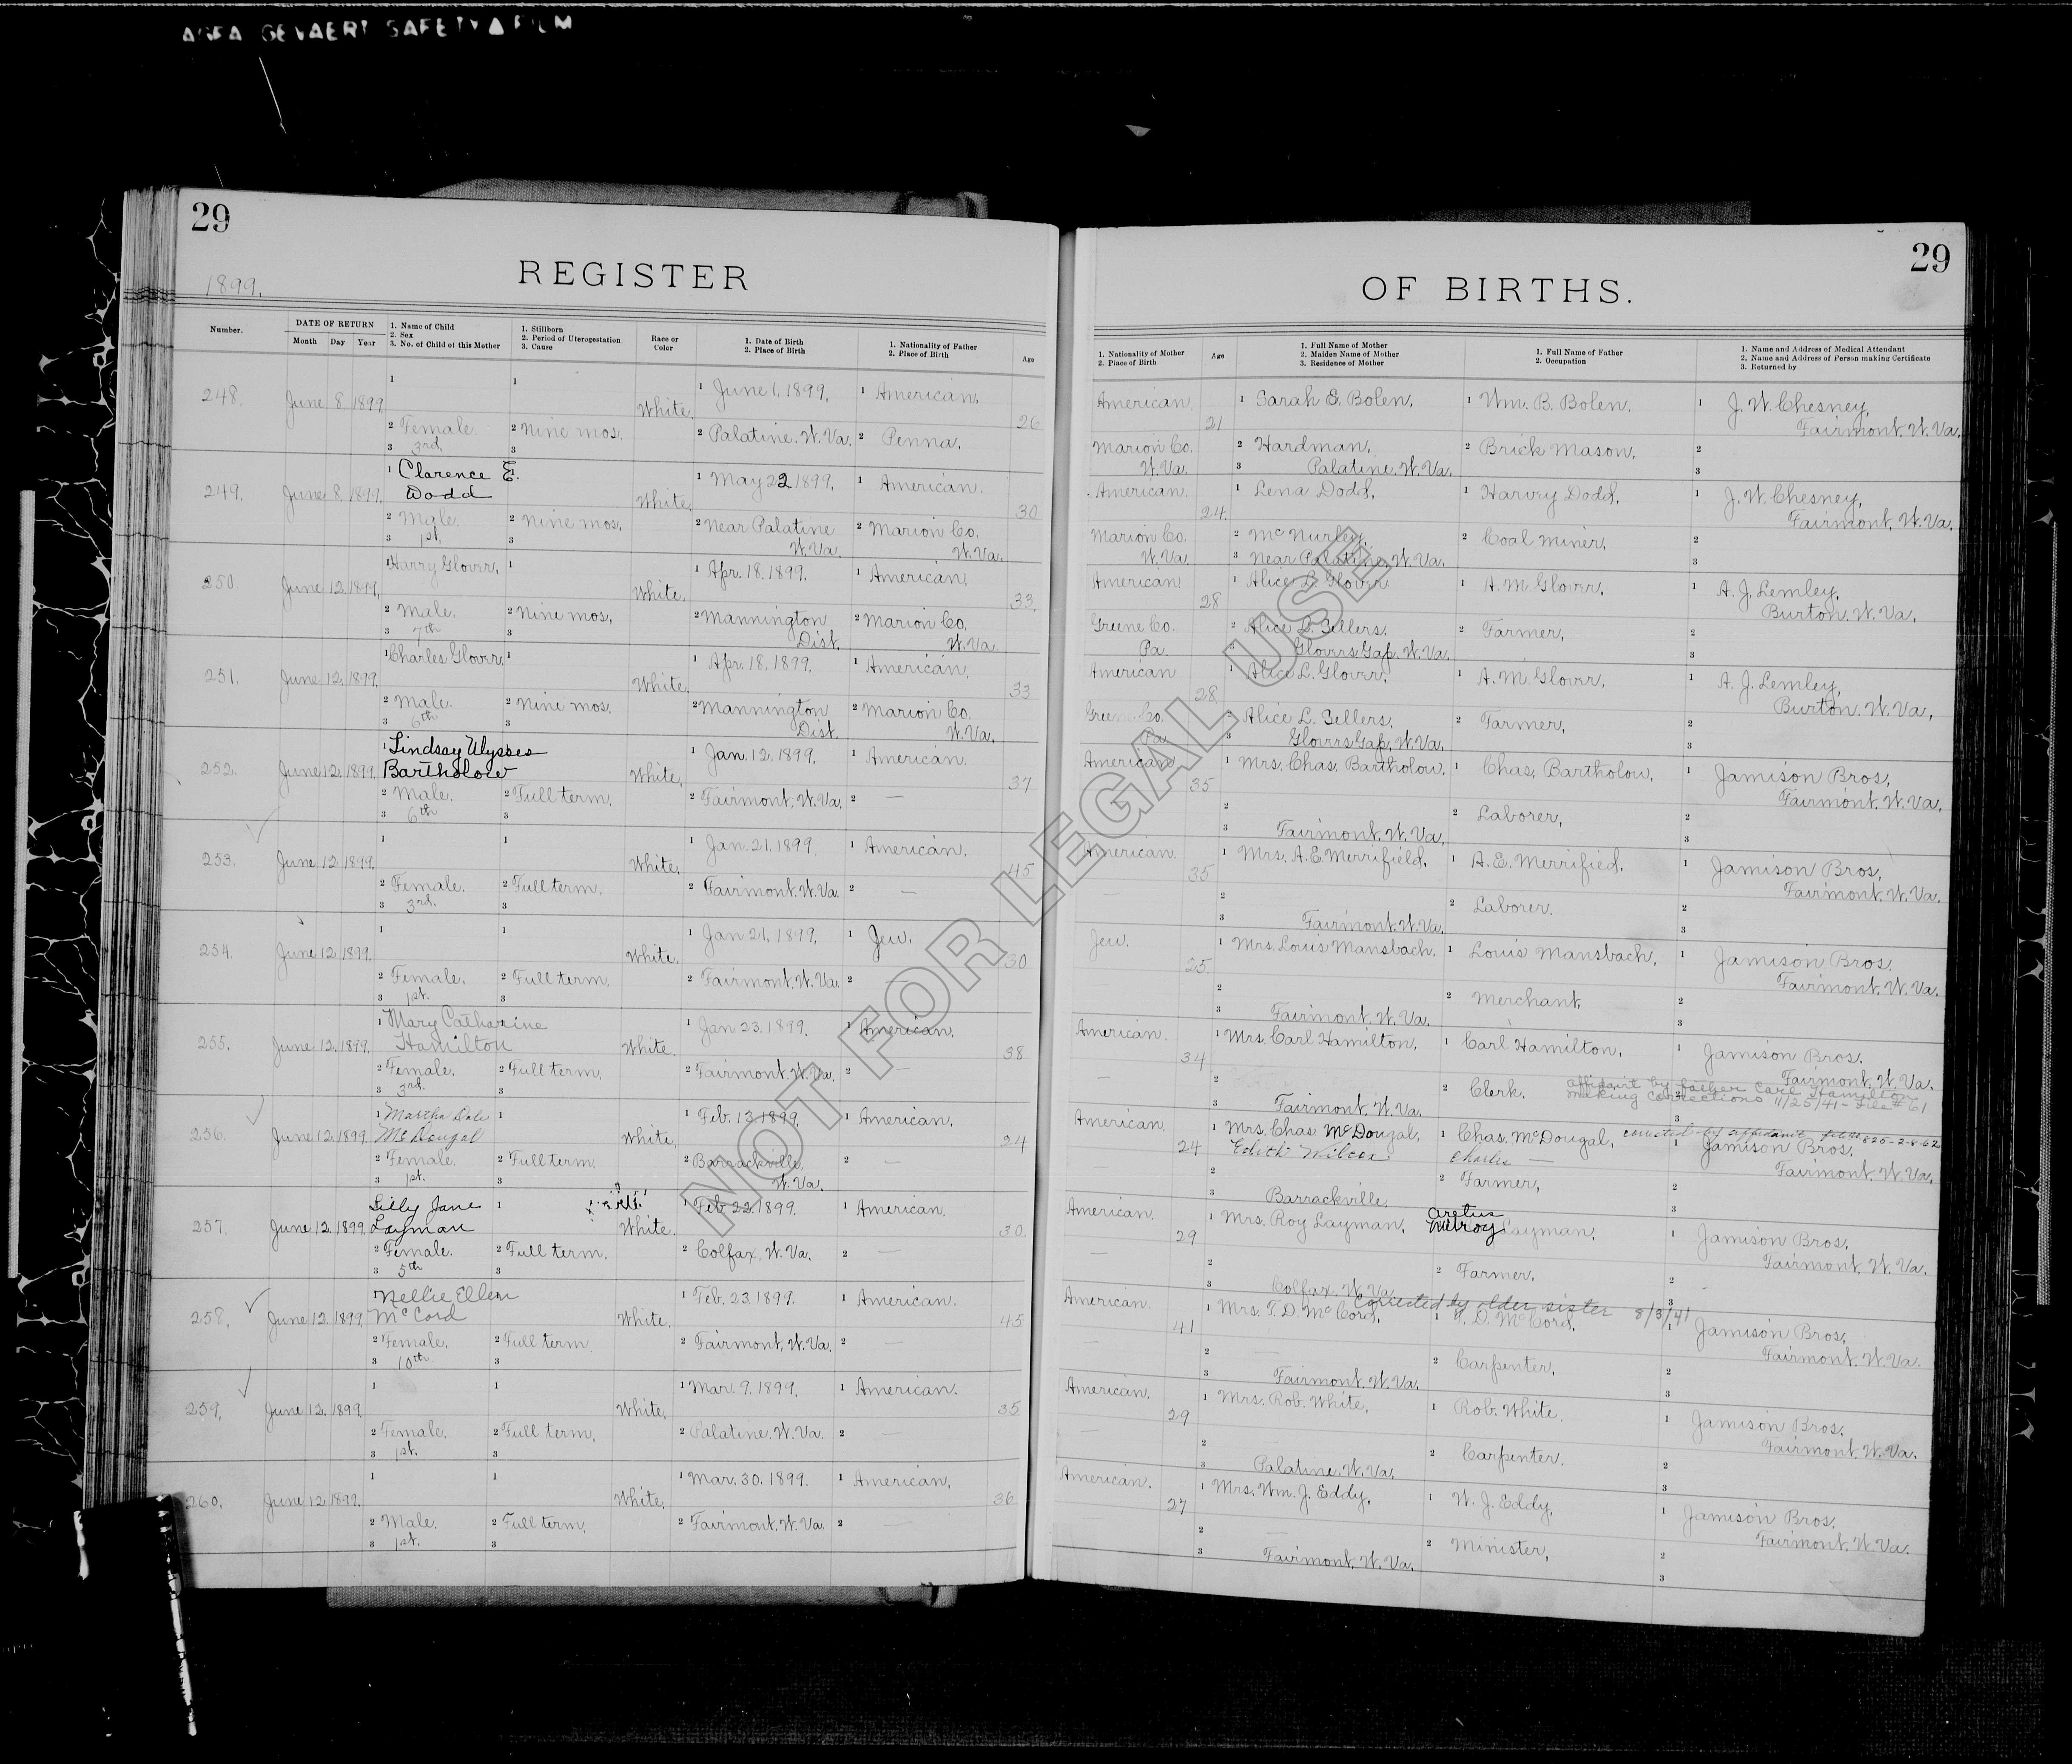 AGFA GEVAERT SAFETY FILM
29
1899.
REGISTER
Number.
DATE OF RETURN
Month Day Year
1. Name of Child
2. Sex
3. No. of Child of this Mother
1. Stillborn
2. Period of Uterogestation
3. Cause
Race or
Color
1. Date of Birth
2. Place of Birth
1. Nationality of Father
2. Place of Birth
Age
248. June 8 1899 1 1 White. 1 June 1, 1899, 1 American, 26
2 Female. 2 Nine mos. 2 Palatine, W. Va. 2 Penna.
3 3rd. 3
249. June 8, 1899, 1 Clarence E. Dodd White. 1 May 22 1899, 1 American. 30
2 Male. 2 Nine mos. 2 Near Palatine W. Va. 2 Marion Co. W. Va.
3 1st. 3
250. June 12, 1899, 1 Harry Glover, 1 White. 1 Apr. 18, 1899. 1 American, 33.
2 Male. 2 Nine mos. 2 Mannington Dist. 2 Marion Co. W. Va.
3 7th 3
251. June 12, 1899, 1 Charles Glover, 1 White. 1 Apr. 18, 1899. 1 American, 33
2 Male. 2 Nine mos. 2 Mannington Dist. 2 Marion Co. W. Va.
3 6th 3
252. June 12, 1899, 1 Lindsay Ulysses Bartholow White. 1 Jan. 12, 1899. 1 American. 37
2 Male. 2 Full term. 2 Fairmont, W. Va. 2 —
3 6th 3
253. June 12, 1899, 1 1 White. 1 Jan. 21, 1899. 1 American. 45
2 Female. 2 Full term. 2 Fairmont. W. Va. 2 —
3 3rd. 3
254. June 12, 1899, 1 1 White. 1 Jan 21, 1899. 1 Jew. 30
2 Female. 2 Full term. 2 Fairmont. W. Va. 2 —
3 1st. 3
255. June 12, 1899, 1 Mary Catharine Hamilton White. 1 Jan 23, 1899. 1 American. 38
2 Female. 2 Full term. 2 Fairmont. W. Va. 2 —
3 3rd. 3
256. June 12, 1899 1 Martha Dale McDougal 1 White. 1 Feb. 13, 1899. 1 American. 24
2 Female. 2 Full term. 2 Barrackville, W. Va. 2 —
3 1st. 3
257. June 12, 1899 Lilly Jane Layman 1 White. 1 Feb 22, 1899. 1 American. 30
2 Female. 2 Full term. 2 Colfax, W. Va. 2 —
3 5th 3
258. June 12, 1899 1 Nellie Ellen McCord White. 1 Feb. 23, 1899. 1 American. 45
2 Female. 2 Full term 2 Fairmont, W. Va. 2 —
3 10th 3
259. June 12, 1899 1 1 White. 1 Mar. 9, 1899. 1 American. 35
2 Female. 2 Full term. 2 Palatine. W. Va. 2 —
3 1st. 3
260. June 12, 1899. 1 1 White. 1 Mar. 30, 1899. 1 American. 36
2 Male. 2 Full term. 2 Fairmont. W. Va. 2 —
3 1st. 3
29
OF BIRTHS.
1. Nationality of Mother
2. Place of Birth
Age
1. Full Name of Mother
2. Maiden Name of Mother
3. Residence of Mother
1. Full Name of Father
2. Occupation
1. Name and Address of Medical Attendant
2. Name and Address of Person making Certificate
3. Returned by
American. 21 1 Sarah E. Bolen, 1 Wm. B. Bolen, 1 J. W. Chesney, Fairmont, W. Va.
Marion Co. W. Va. 2 Hardman, 2 Brick Mason, 2
3 Palatine, W. Va. 3
American. 24. 1 Lena Dodd, 1 Harvey Dodd, 1 J. W. Chesney, Fairmont, W. Va.
Marion Co. W. Va. 2 McNurley, 2 Coal Miner, 2
3 Near Palatine, W. Va. 3
American 28 1 Alice L. Glover 1 A. M. Glover, 1 A. J. Lemley, Burton, W. Va.
Greene Co. Pa. 2 Alice L. Sellers. 2 Farmer, 2
3 Glovers Gap, W. Va. 3
American 28 1 Alice L. Glover, 1 A. M. Glover, 1 A. J. Lemley, Burton, W. Va.
Greene Co. Pa. 2 Alice L. Sellers. 2 Farmer, 2
3 Glovers Gap, W. Va. 3
American 35 1 Mrs. Chas. Bartholow, 1 Chas. Bartholow, 1 Jamison Bros. Fairmont, W. Va.
2 2 Laborer, 2
3 Fairmont, W. Va. 3
American. 35 1 Mrs. A. E. Merrifield, 1 A. E. Merrified, 1 Jamison Bros, Fairmont, W. Va.
2 2 Laborer. 2
3 Fairmont, W. Va. 3
Jew. 25 1 Mrs. Louis Mansbach, 1 Louis Mansbach, 1 Jamison Bros. Fairmont, W. Va.
2 2 Merchant, 2
3 Fairmont, W. Va. 3
American. 34 1 Mrs. Carl Hamilton, 1 Carl Hamilton, 1 Jamison Bros. Fairmont, W. Va.
— 2 2 Clerk. affidavit by father Carl Hamilton
making corrections 11/25/41 - File # 61
3 Fairmont. W. Va. 3
American. 24 1 Mrs. Chas McDougal, 1 Chas. McDougal, corrected by affidavit 825-2-8-62
Edith Wilcox Charles — 1 Jamison Bros. Fairmont, W. Va.
2 2 Farmer, 2
3 Barrackville. 3
American. 29 1 Mrs. Roy Layman, Aretus Milroy Layman, 1 Jamison Bros, Fairmont, W. Va.
— 2 2 Farmer, 2
3 Colfax, W. Va. 3
Corrected by older sister 8/3/41
American. 41 1 Mrs. T. D. McCord, 1 T. D. McCord, 1 Jamison Bros, Fairmont, W. Va.
— 2 — 2 Carpenter, 2
3 Fairmont, W. Va. 3
American. 29 1 Mrs. Rob. White, 1 Rob. White, 1 Jamison Bros. Fairmont, W. Va.
— 2 2 Carpenter. 2
3 Palatine, W. Va. 3
American. 27 1 Mrs. Wm. J. Eddy, 1 W. J. Eddy, 1 Jamison Bros. Fairmont, W. Va.
2 — 2 Minister, 2
3 Fairmont, W. Va. 3
NOT FOR LEGAL USE